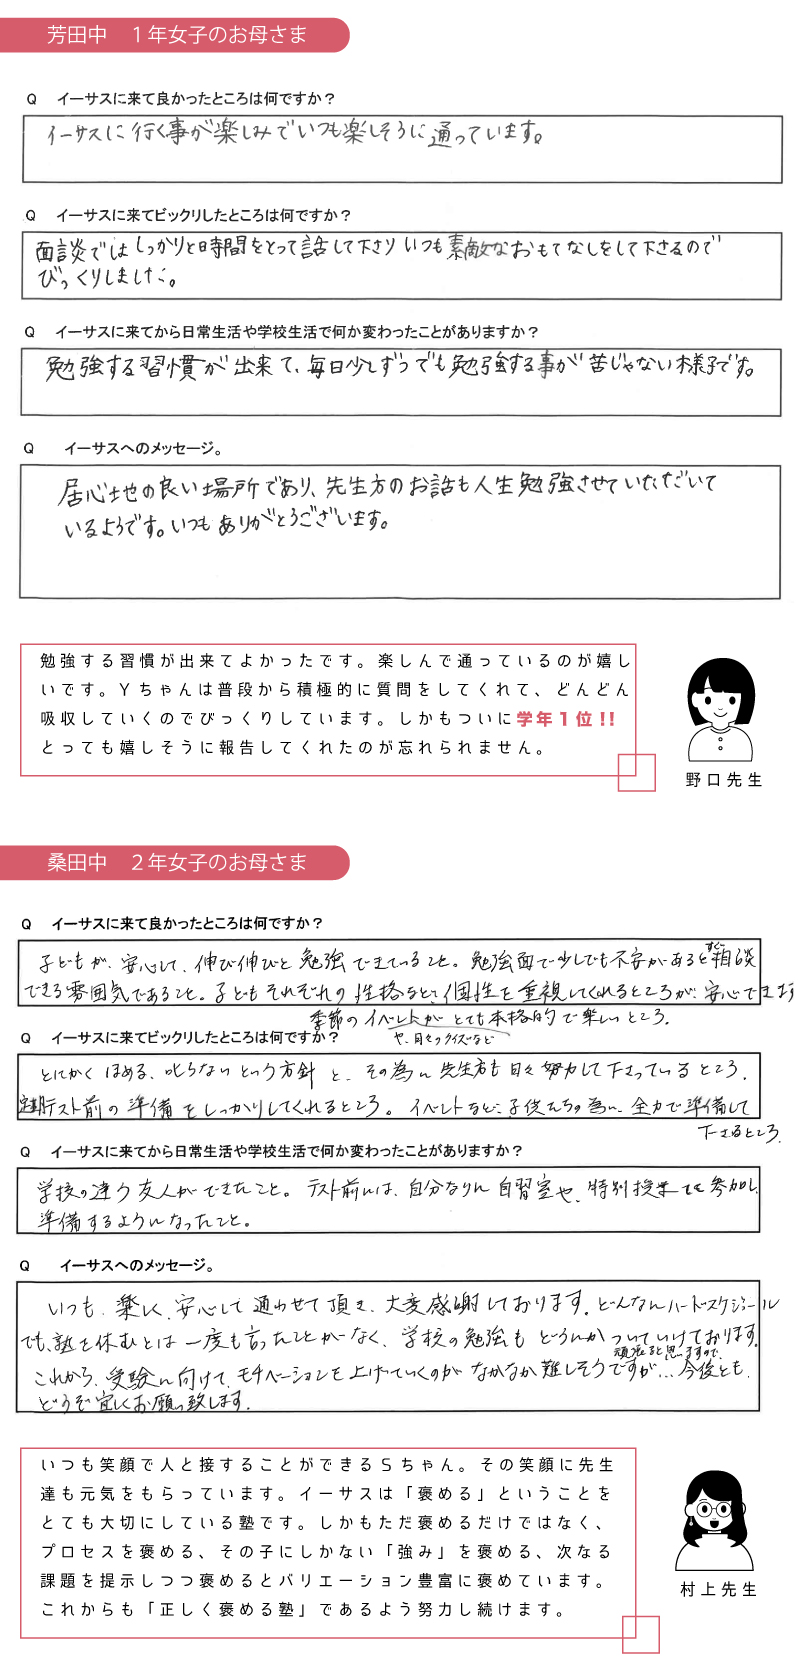 芳田中　１年女子のお母さま
Q　イーサスに来て良かったところは何ですか？
イーサスに行く事が楽しみでいつも楽しそうに通っています。
Q　イーサスに来てビックリしたところは何ですか？
面談ではしっかりと時間をとって話して下さり いつも素敵なおもてなしをして下さるので
びっくりしました。
Q　イーサスに来てから日常生活や学校生活で何か変わったことがありますか？
勉強する習慣が出来て、毎日少しずつでも勉強する事が苦じゃない様子です。
Q　イーサスへのメッセージ。
居心地の良い場所であり、先生方のお話も人生勉強させていただいて
いるようです。いつもありがとうございます。
勉強する習慣が出来てよかったです。楽しんで通っているのが嬉し
いです。Ｙちゃんは普段から積極的に質問をしてくれて、どんどん
吸収していくのでびっくりしています。しかもついに学年１位!!
とっても嬉しそうに報告してくれたのが忘れられません。
野口先生
桑田中　２年女子のお母さま
Q　イーサスに来て良かったところは何ですか？
子どもが、安心して、伸び伸びと勉強できていること。勉強面で少しでも不安があるとすぐ相談
できる雰囲気であること。子どもそれぞれの性格など、個性を重視してくれるところが、安心できます
季節のイベントがとても本格的で楽しいところ。
や、日々のクイズなど
Q　イーサスに来てビックリしたところは何ですか？
とにかくほめる、叱らないという方針と、その為に先生方も日々努力して下さっているところ、
定期テスト前の準備をしっかりしてくれるところ。イベントなど、子供たちの為に、全力で準備して
下さるところ。
Q　イーサスに来てから日常生活や学校生活で何か変わったことがありますか？
学校の違う友人ができたこと。テスト前には、自分なりに自習室や、特別授業でも参加し、
準備するようになったこと。
Q　イーサスへのメッセージ。
いつも、楽しく、安心して通わせて頂き、大変感謝しております。どんなにハードスケジュール
でも、塾を休むとは一度も言ったことがなく、学校の勉強もどうにかついていけております。
頑張ると思いますので、
これから、受験に向けて、モチベーションを上げていくのがなかなか難しそうですが…今後とも、
どうぞ宜しくお願い致します。
いつも笑顔で人と接することができるＳちゃん。その笑顔に先生
達も元気をもらっています。イーサスは「褒める」ということを
とても大切にしている塾です。しかもただ褒めるだけではなく、
プロセスを褒める、その子にしかない「強み」を褒める、次なる
課題を提示しつつ褒めるとバリエーション豊富に褒めています。
これからも「正しく褒める塾」であるよう努力し続けます。
村上先生